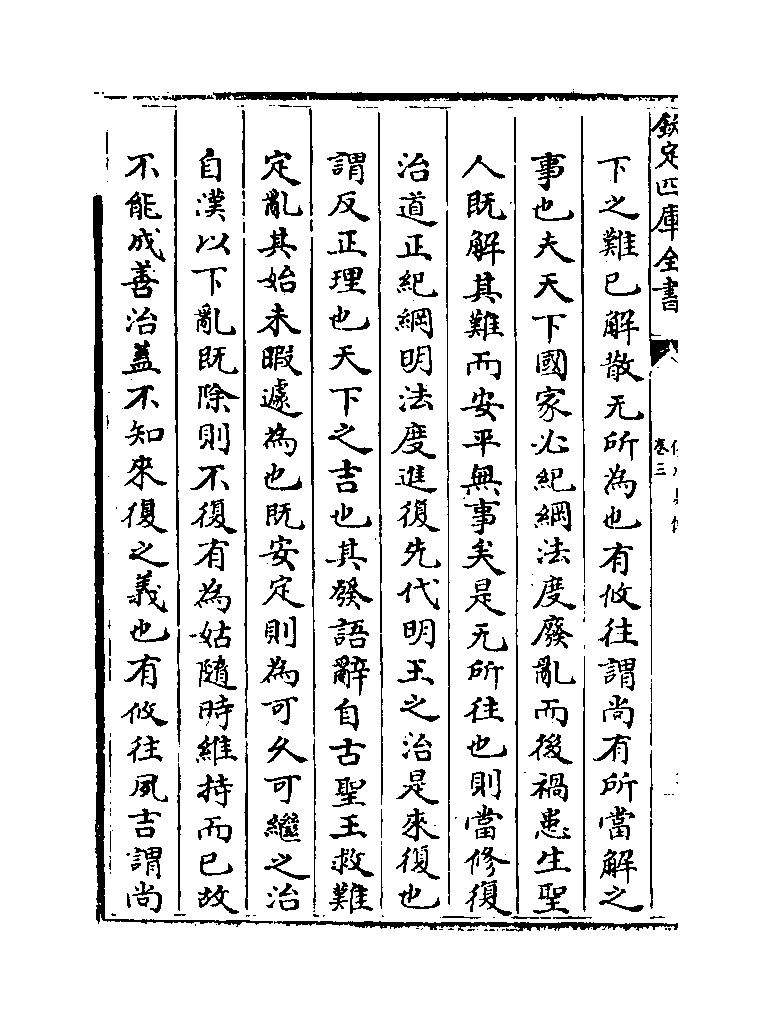 欽定四庫全書
卷三
下之難已解散无所為也有攸往謂尚有所當解之
事也夫天下國家必紀綱法度廢亂而後禍患生聖
人既解其難而安平無事矣是无所往也則當修復
治道正紀綱明法度進復先代明王之治是來復也
謂反正理也天下之吉也其發語辭自古聖王救難
定亂其始未暇遽為也既安定則為可久可繼之治
自漢以下亂既除則不復有為姑隨時維持而已故
不能成善治蓋不知來復之義也有攸往夙吉謂尚